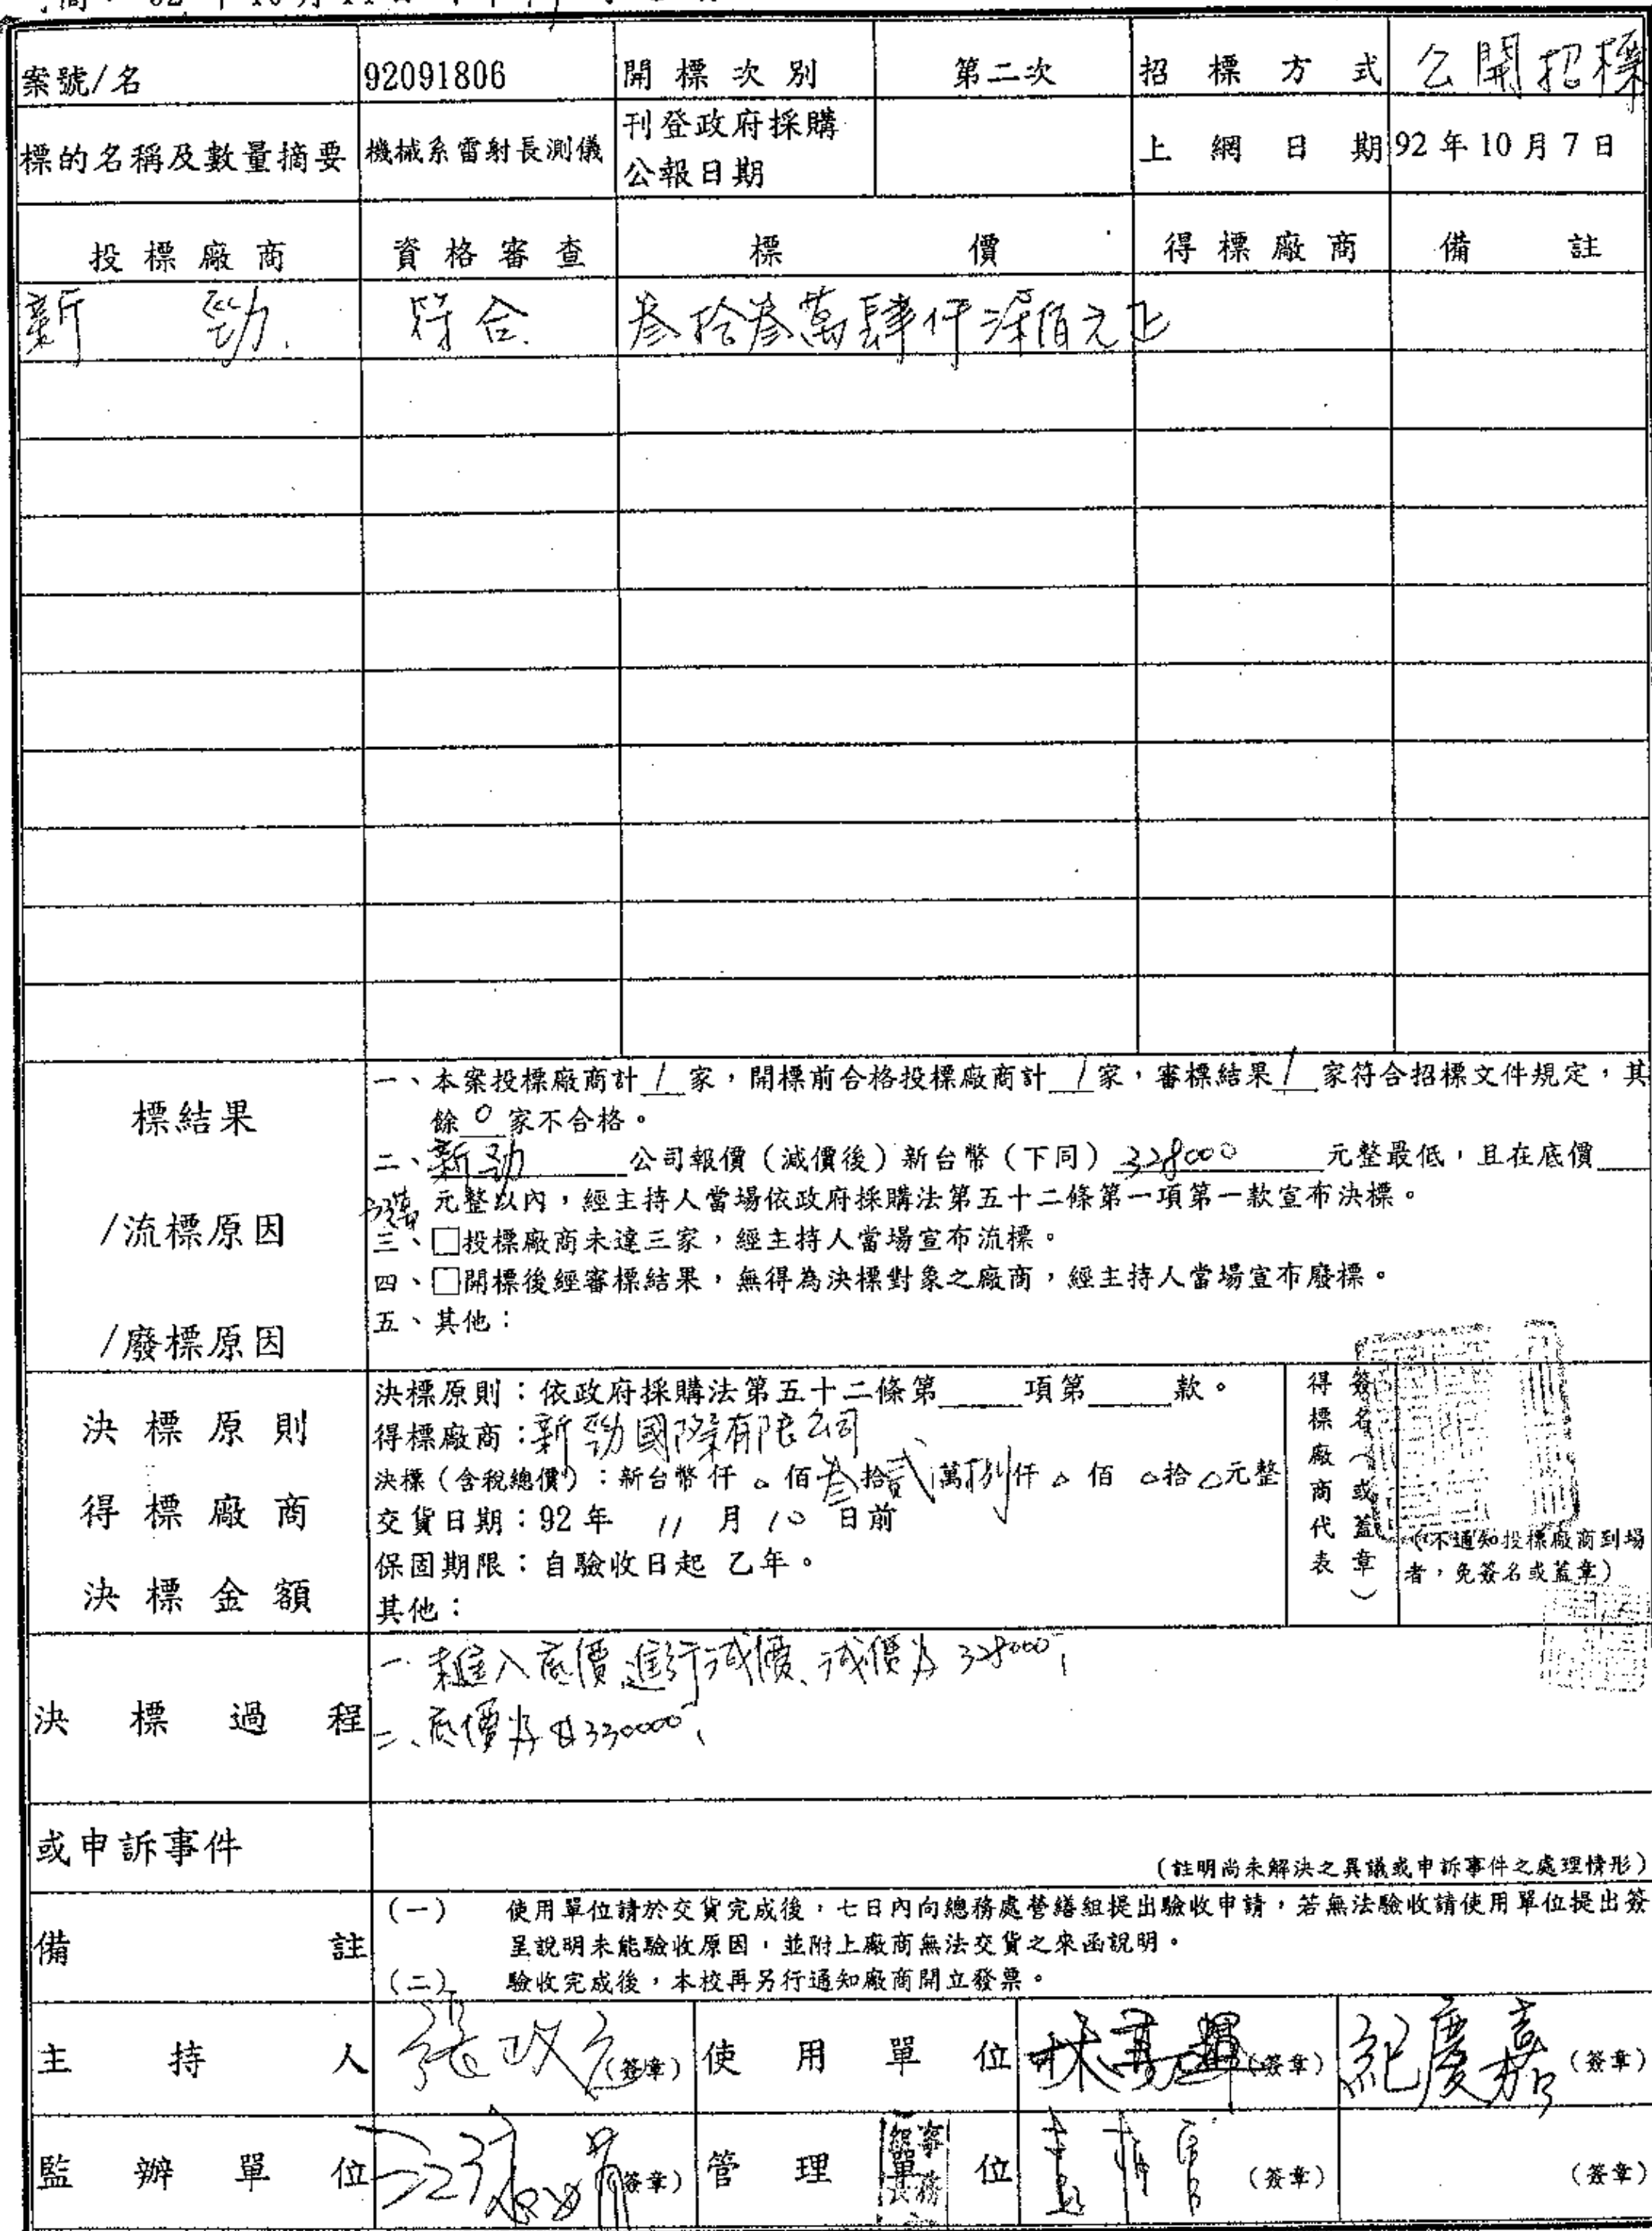 92 年 10 月 14 日
案號/名 92091806 開標次別 第二次 招標方式 公開招標
標的名稱及數量摘要 機械系雷射長測儀 刊登政府採購公報日期 上網日期 92 年 10 月 7 日
投標廠商 資格審查 標價 得標廠商 備註
新勁 符合 叁拾叁萬肆仟柒佰元正
標結果
/流標原因
/廢標原因
一、本案投標廠商計 1 家,開標前合格投標廠商計 1 家,審標結果 1 家符合招標文件規定,其
餘 0 家不合格。
二、新勁 公司報價(減價後)新台幣(下同) 328000 元整最低,且在底價
元整以內,經主持人當場依政府採購法第五十二條第一項第一款宣布決標。
三、□投標廠商未達三家,經主持人當場宣布流標。
四、□開標後經審標結果,無得為決標對象之廠商,經主持人當場宣布廢標。
五、其他:
決標原則
得標廠商
決標金額
決標原則:依政府採購法第 五十二條第 項第 款。
得標廠商:新勁國際有限公司
決標(含稅總價):新台幣 仟 佰 叁拾 貳萬 捌仟 佰 拾 元整
交貨日期:92 年 11 月 10 日前
保固期限:自驗收日起 乙年。
其他:
得標廠商代表
簽名(或蓋章)
(不通知投標廠商到場
者,免簽名或蓋章)
決標過程
一.未進入底價,進行減價、減價為 328000,
二、底價為 330000,
或申訴事件
(註明尚未解決之異議或申訴事件之處理情形)
備註
(一) 使用單位請於交貨完成後,七日內向總務處營繕組提出驗收申請,若無法驗收請使用單位提出簽
呈說明未能驗收原因,並附上廠商無法交貨之來函說明。
(二) 驗收完成後,本校再另行通知廠商開立發票。
主持人 (簽章) 使用單位 (簽章) 紀慶嘉 (簽章)
監辦單位 (簽章) 管理單位 (簽章) (簽章)